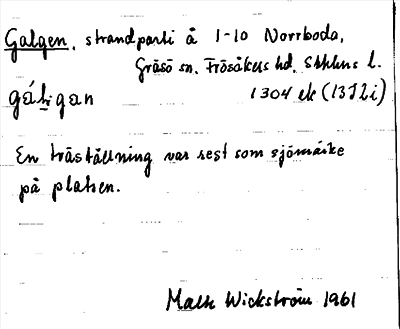 Galgen, strandparti å 1-10 Norrboda,
Gräsö sn. Frösåkers hd. Sthlms l.
gál̠igan 1304 ek (13I2i)
En träställning var rest som sjömärke
på platsen.
Mats Wickström 1961